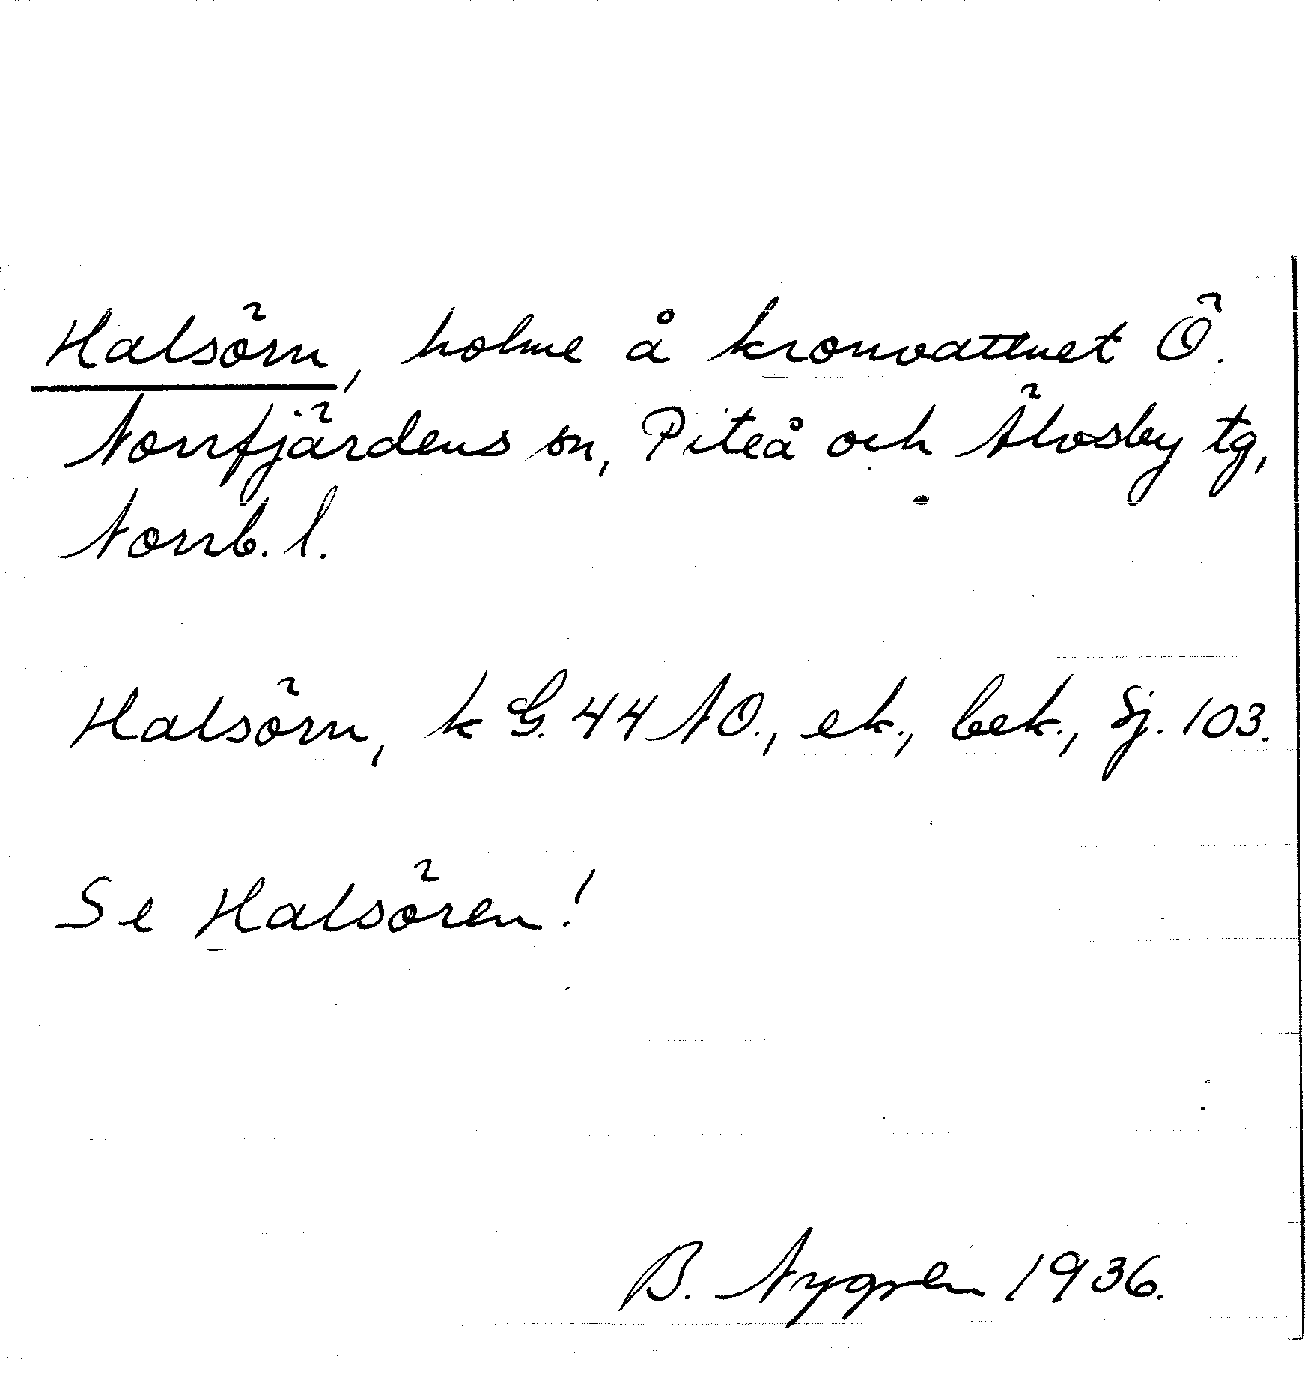 Halsörn, holme å kronvattnet Ö.
Norrfjärdens sn, Piteå och Älvsby tg,
Norrb. l.
Halsörn, k G. 44 NO., ek., bek., Sj. 103.
Se Halsören!
B. Nygren 1936.